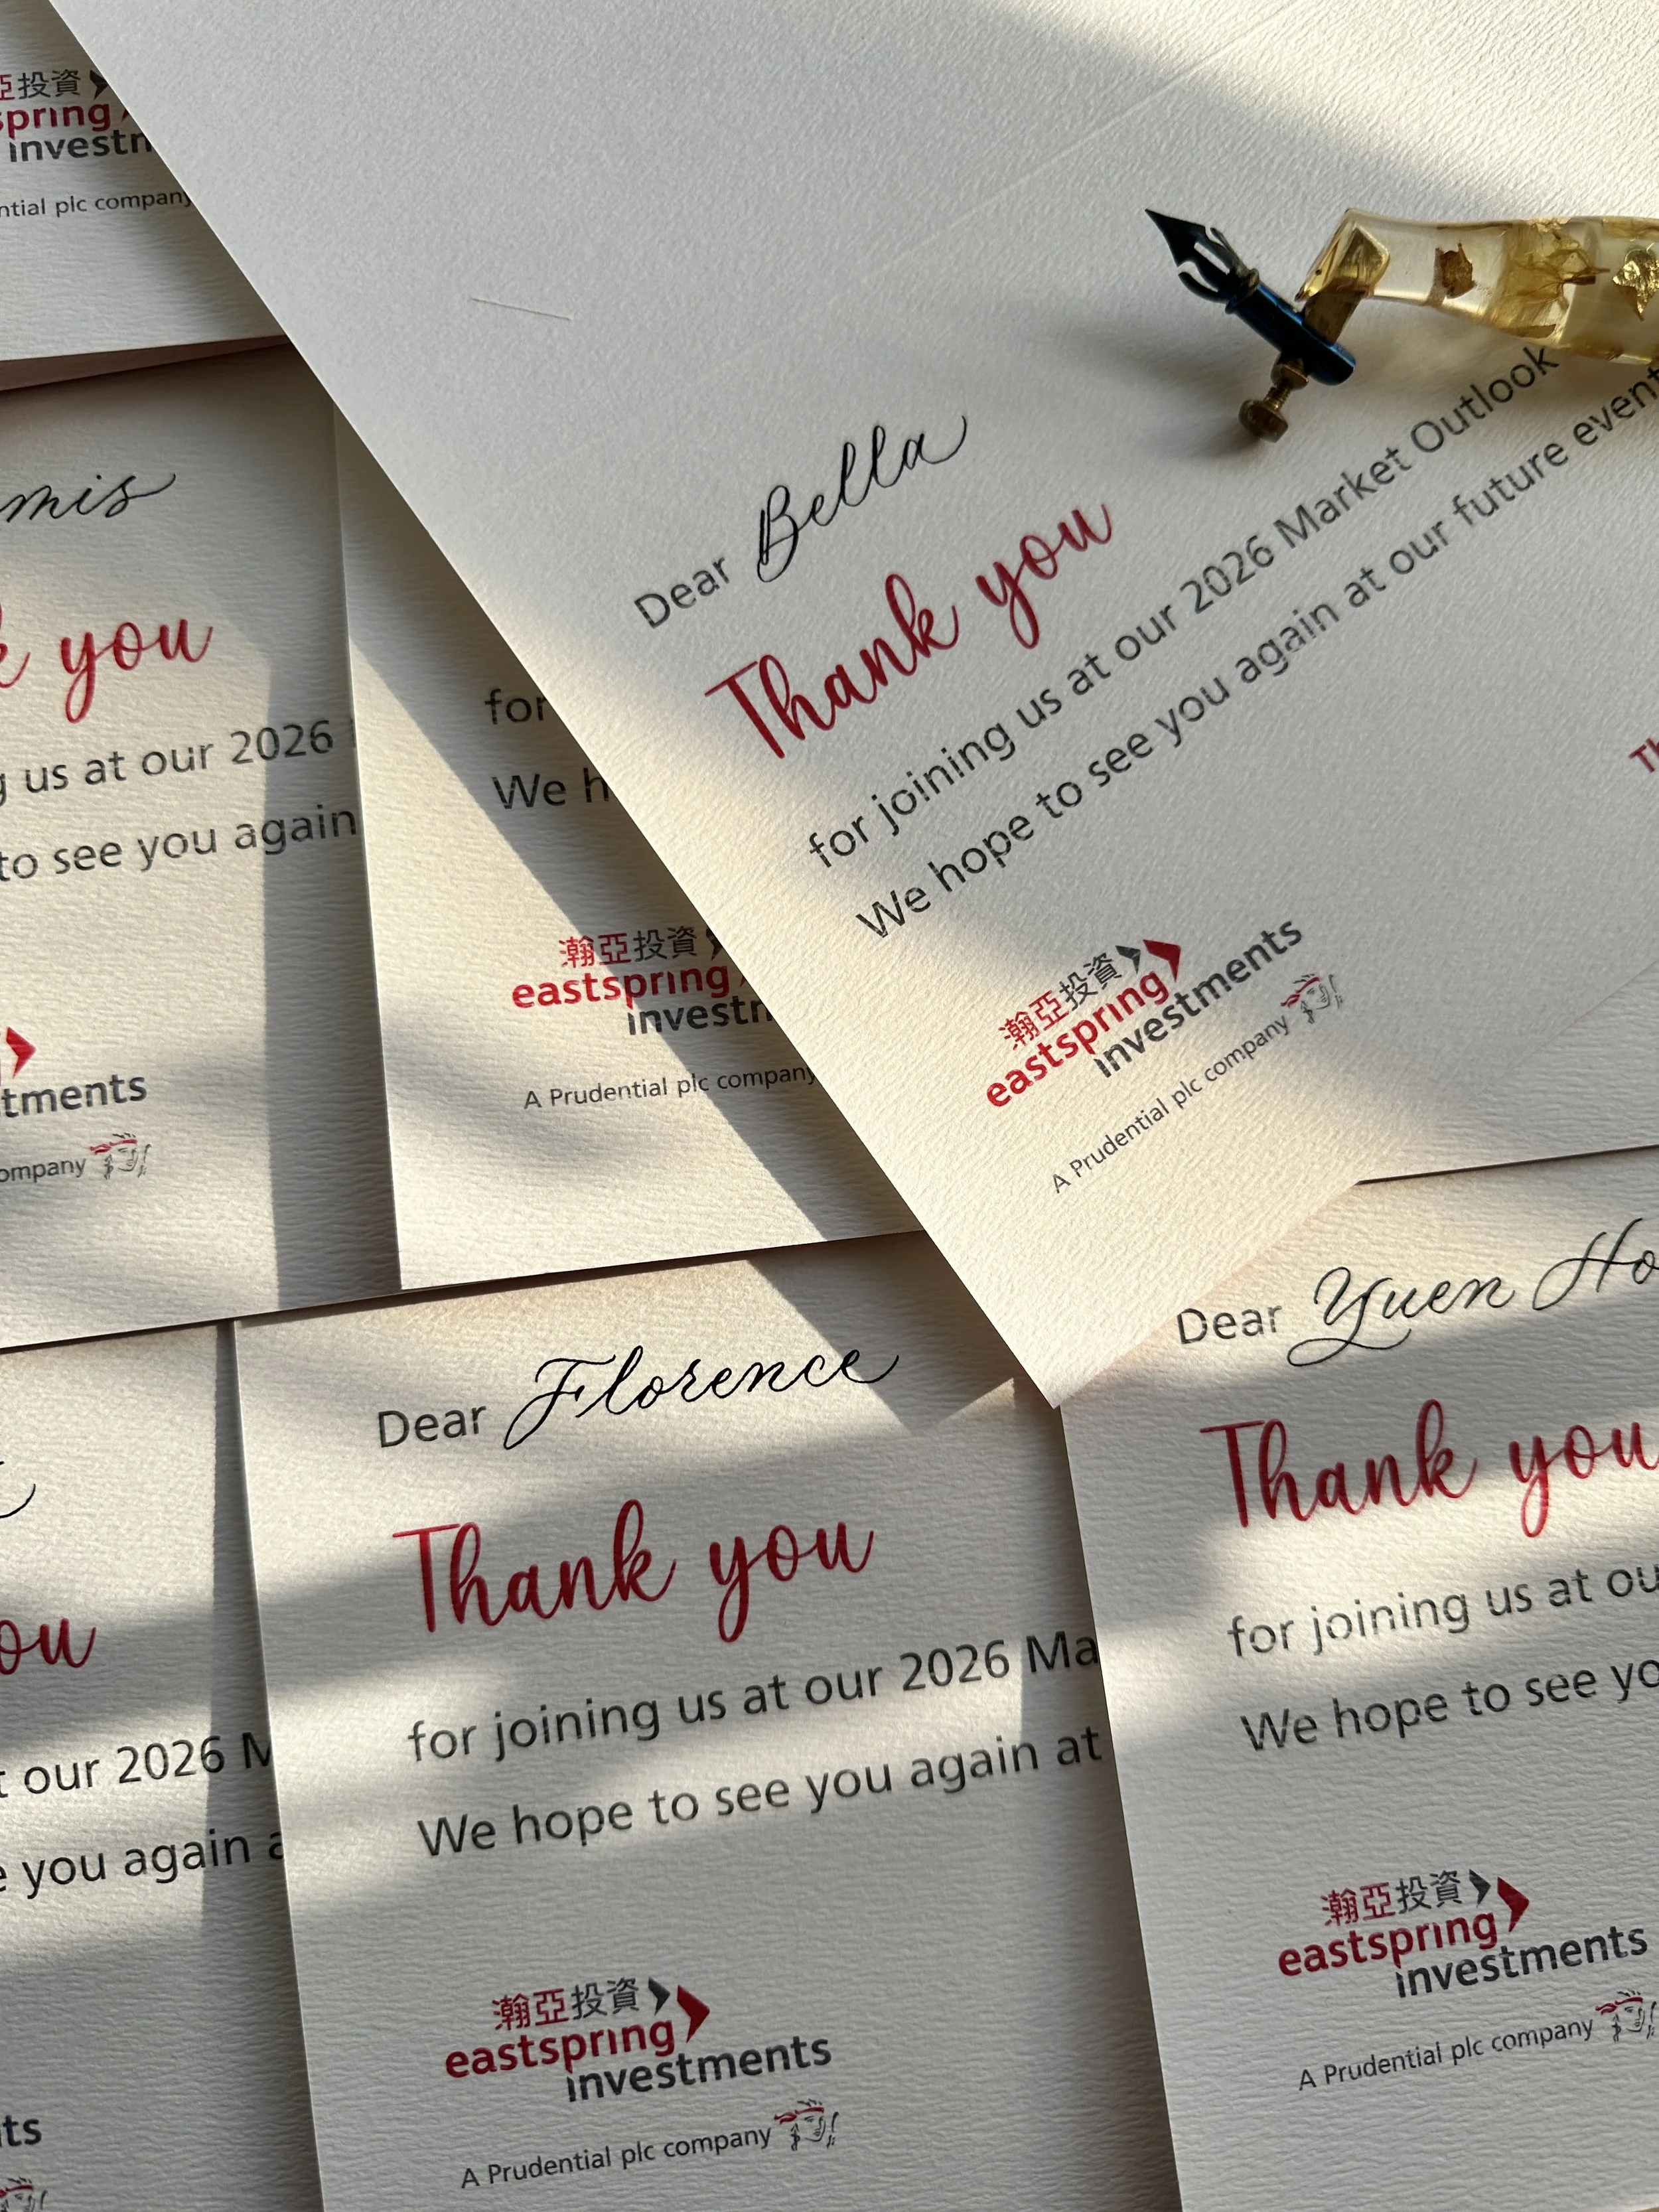 亞投資
spring
investm
ntial plc company
mis
k you
us at our 2026
to see you again
tments
ompany
for
We h
瀚亞投資
eastspring
investm
A Prudential plc company
Dear Bella
Thank you
for joining us at our 2026 Market Outlook
We hope to see you again at our future event
Th
瀚亞投資
eastspring
investments
A Prudential plc company
ou
t our 2026 M
e you again a
ts
Dear Florence
Thank you
for joining us at our 2026 Ma
We hope to see you again at
瀚亞投資
eastspring
investments
A Prudential plc company
Dear Yuen Ho
Thank you
for joining us at ou
We hope to see yo
瀚亞投資
eastspring
investments
A Prudential plc company